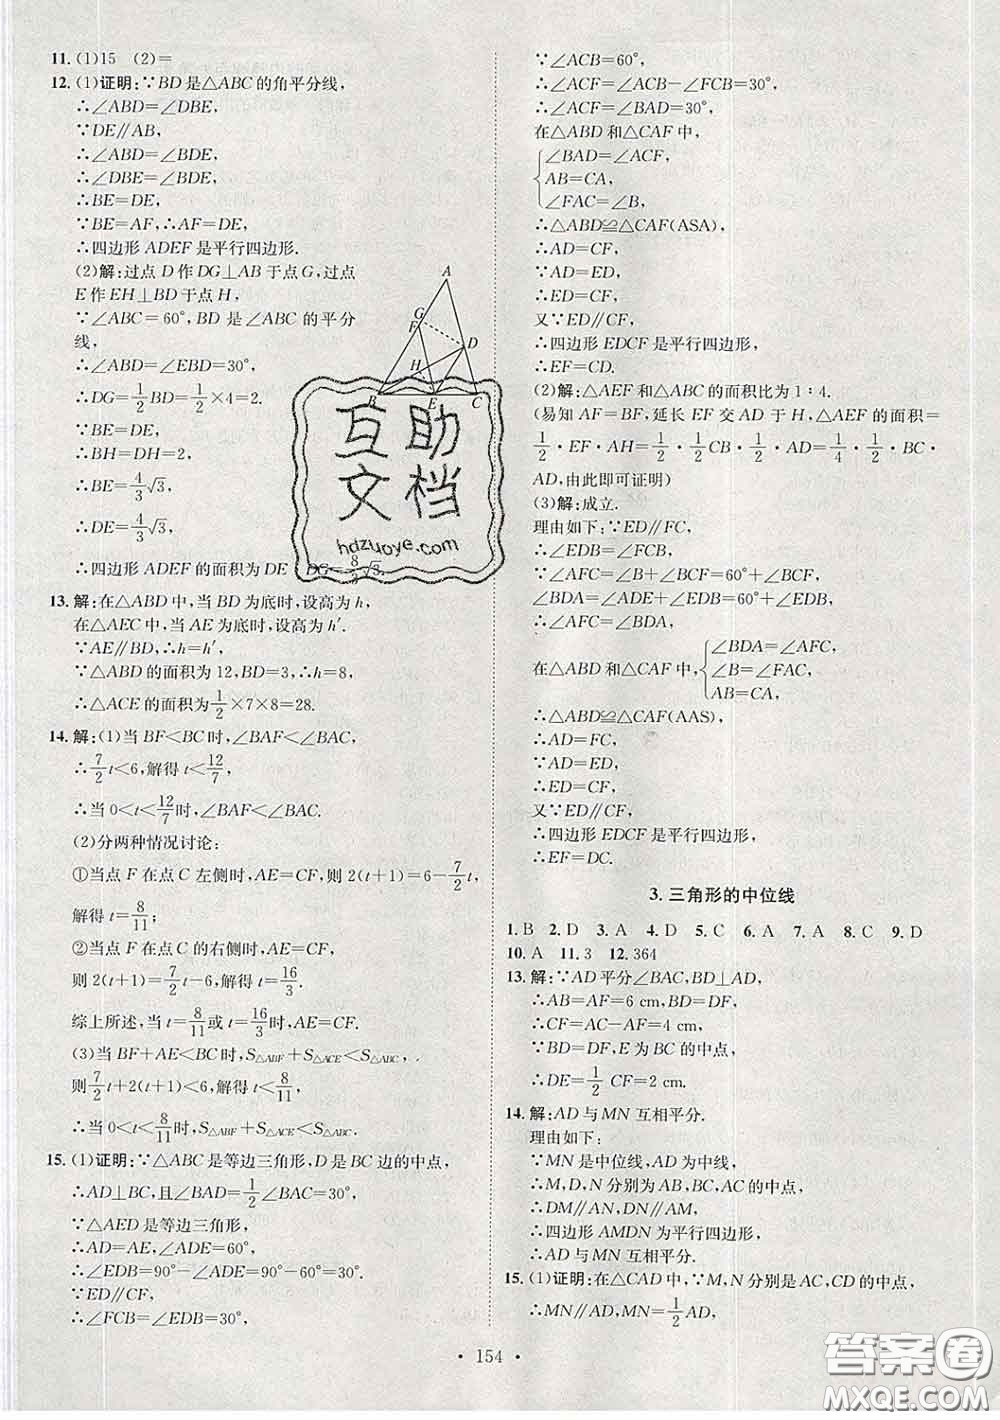 11. (1)15 (2)=
12. (1)证明:∵BD是△ABC的角平分线,
∴∠ABD=∠DBE,
∵DE∥AB,
∴∠ABD=∠BDE,
∴∠DBE=∠BDE,
∴BE=DE,
∵BE=AF,∴AF=DE,
∴四边形ADEF是平行四边形.
(2)解:过点D作DG⊥AB于点G,过点
E作EH⊥BD于点H,
∵∠ABC=60°,BD是∠ABC的平分
线,
∴∠ABD=∠EBD=30°,
∴DG=1/2BD=1/2×4=2.
∵BE=DE,
∴BH=DH=2,
∴BE=4/3√3,
∴DE=4/3√3,
∴四边形ADEF的面积为DE·DG=8/3√3.
A
G
F
D
H
B E C
互助
文档
hdzuoye.com
13. 解:在△ABD中,当BD为底时,设高为h,
在△AEC中,当AE为底时,设高为h′.
∵AE∥BD,∴h=h′,
∵△ABD的面积为12,BD=3,∴h=8,
∴△ACE的面积为1/2×7×8=28.
14. 解:(1)当BF<BC时,∠BAF<∠BAC,
∴7/2t<6,解得t<12/7,
∴当0<t<12/7时,∠BAF<∠BAC.
(2)分两种情况讨论:
①当点F在点C左侧时,AE=CF,则2(t+1)=6-7/2t,
解得t=8/11;
②当点F在点C的右侧时,AE=CF,
则2(t+1)=7/2t-6,解得t=16/3.
综上所述,当t=8/11或t=16/3时,AE=CF.
(3)当BF+AE<BC时,S△ABF+S△ACE<S△ABC,
则7/2t+2(t+1)<6,解得t<8/11,
∴当0<t<8/11时,S△ABF+S△ACE<S△ABC.
15. (1)证明:∵△ABC是等边三角形,D是BC边的中点,
∴AD⊥BC,且∠BAD=1/2∠BAC=30°,
∵△AED是等边三角形,
∴AD=AE,∠ADE=60°,
∴∠EDB=90°-∠ADE=90°-60°=30°,
∵ED∥CF,
∴∠FCB=∠EDB=30°,
∵∠ACB=60°,
∴∠ACF=∠ACB-∠FCB=30°,
∴∠ACF=∠BAD=30°,
在△ABD和△CAF中,
∠BAD=∠ACF,
AB=CA,
∠FAC=∠B,
∴△ABD≌△CAF(ASA)
∴AD=CF,
∵AD=ED,
∴ED=CF,
又∵ED∥CF,
∴四边形EDCF是平行四边形,
∴EF=CD.
(2)解:△AEF和△ABC的面积比为1∶4.
(易知AF=BF,延长EF交AD于H,△AEF的面积=
1/2·EF·AH=1/2·1/2CB·1/2·AD=1/4·1/2·BC·
AD,由此即可证明)
(3)解:成立.
理由如下:∵ED∥FC,
∴∠EDB=∠FCB,
∵∠AFC=∠B+∠BCF=60°+∠BCF,
∠BDA=∠ADE+∠EDB=60°+∠EDB,
∴∠AFC=∠BDA,
在△ABD和△CAF中,
∠BDA=∠AFC,
∠B=∠FAC,
AB=CA,
∴△ABD≌△CAF(AAS)
∴AD=FC,
∵AD=ED,
∴ED=CF,
又∵ED∥CF,
∴四边形EDCF是平行四边形,
∴EF=DC.
3. 三角形的中位线
1. B 2. D 3. A 4. D 5. C 6. A 7. A 8. C 9. D
10. A 11. 3 12. 364
13. 解:∵AD平分∠BAC,BD⊥AD,
∴AB=AF=6 cm,BD=DF,
∴CF=AC-AF=4 cm,
∵BD=DF,E为BC的中点,
∴DE=1/2 CF=2 cm.
14. 解:AD与MN互相平分.
理由如下:
∵MN是中位线,AD为中线,
∴M,D,N分别为AB,BC,AC的中点,
∴DM∥AN,DN∥AM,
∴四边形AMDN为平行四边形,
∴AD与MN互相平分.
15. (1)证明:在△CAD中,∵M,N分别是AC,CD的中点,
∴MN∥AD,MN=1/2AD,
• 154 •
答案圈
MXQE.COM